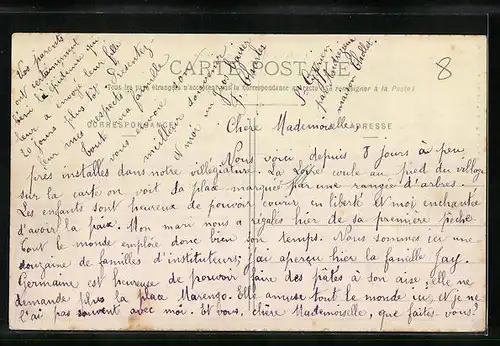 CARTE POSTALE
Tous les pays étrangers n'acceptent pas la correspondance au recto (se renseigner à la Poste)
CORRESPONDANCE
ADRESSE
8
Chère Mademoiselle,
Nous voici depuis 8 jours à peu
près installés dans notre villégiature. La Loire coule au pied du village
sur la carte on voit sa place marquée par une rangée d'arbres.
Les enfants sont heureux de pouvoir courir en liberté et moi enchantée
d'avoir la paix. Mon mari nous a régalés hier de sa première pêche
Tout le monde emploie donc bien son temps. Nous sommes ici une
douzaine de familles d'instituteurs; j'ai aperçu hier la famille Jay.
Germaine est heureuse de pouvoir faire des pâtés à son aise, elle ne
demande plus la place Marengo. Elle amuse tout le monde ici, et je ne
l'ai pas souvent avec moi. Et vous, chère Mademoiselle, que faites vous?
Vos parents
ont certainement
leur a envoyé leur fille
20 jours plus tôt. Présentez
leur mes respects
toute ma famille
vous envoie son
meilleur souvenir
et moi un baiser